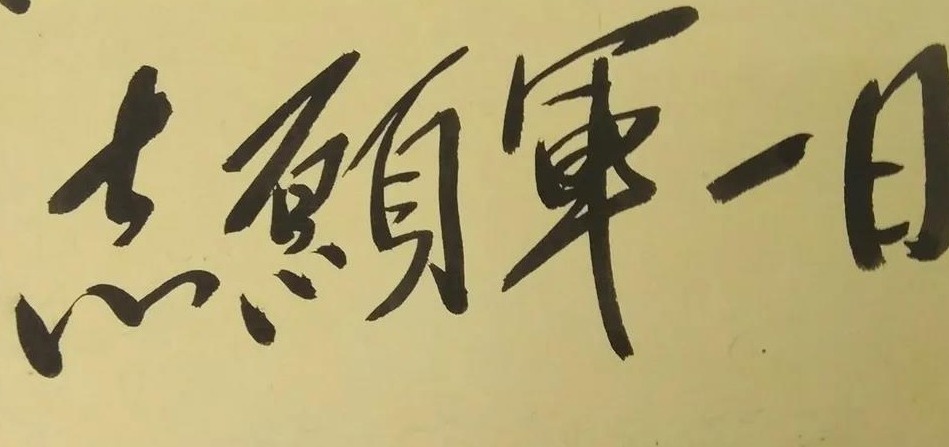 志願軍一日